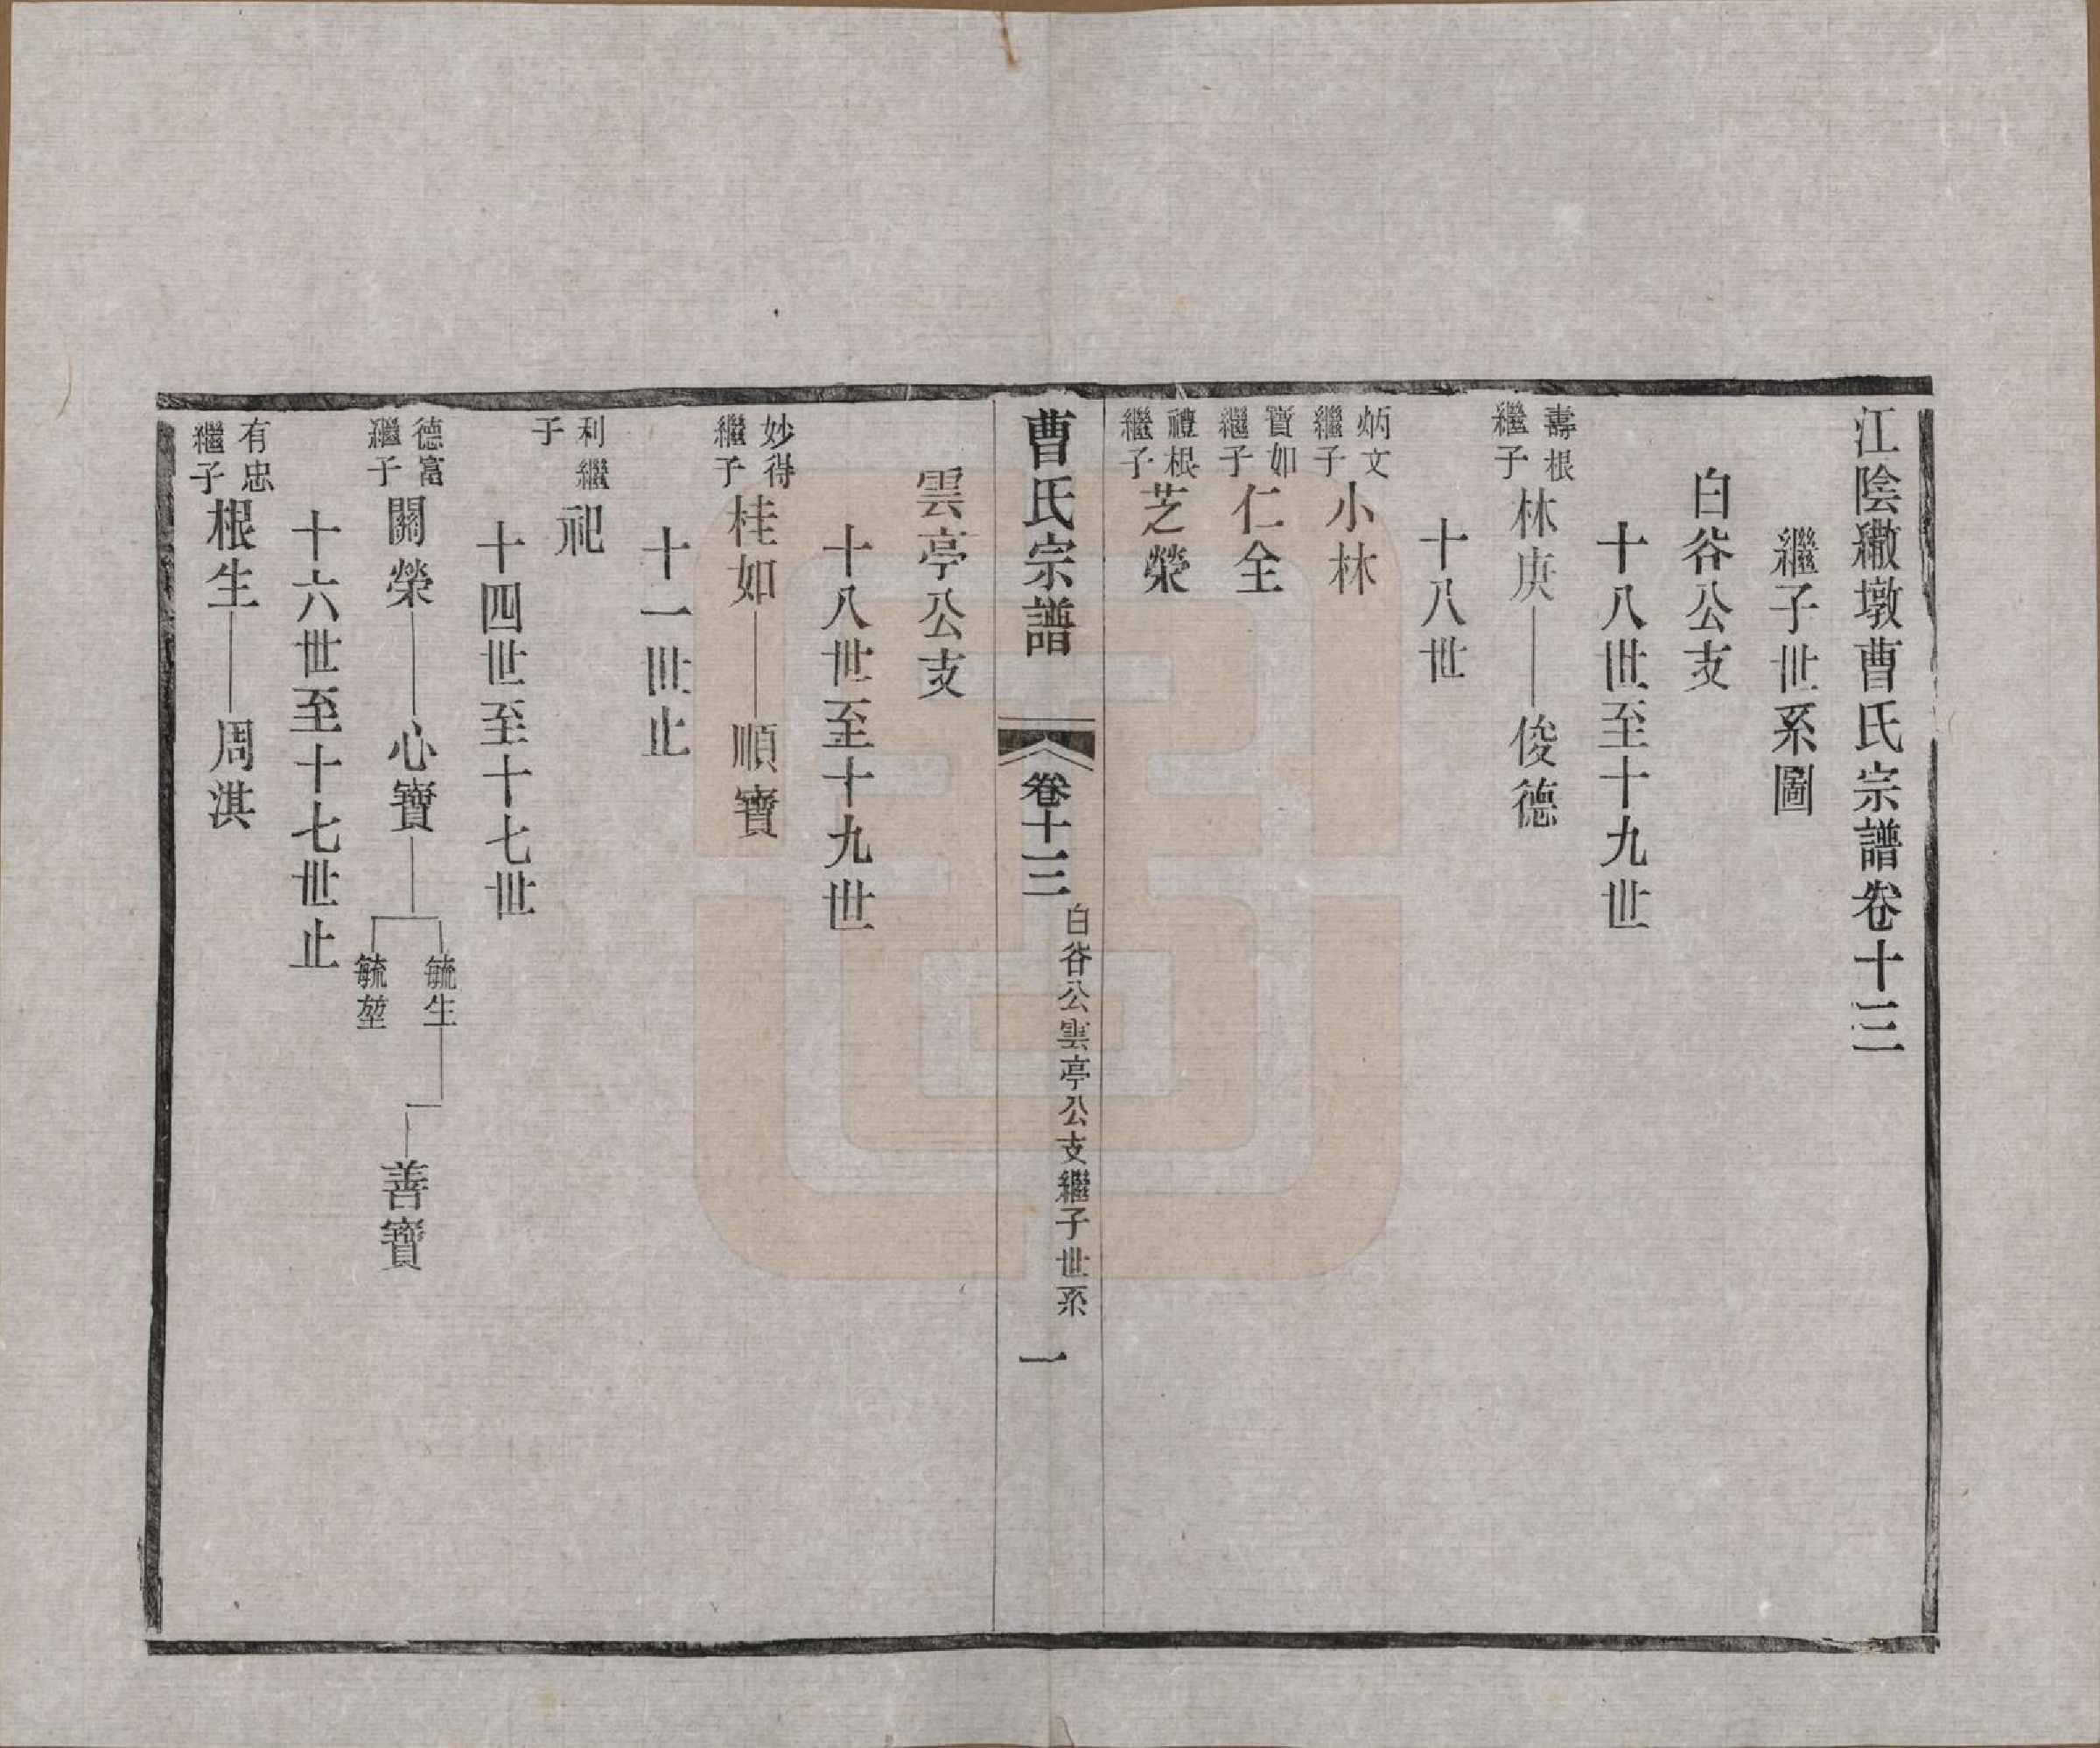 江陰繖墩曹氏宗譜卷十三
繼子世系圖
白谷公支
十八世至十九世
壽根繼子 林庚 俊德
十八世
炳文繼子 小林
寶如繼子 仁全
禮根繼子 芝榮
曹氏宗譜 卷十三 白谷公雲亭公支繼子世系 一
雲亭公支
十八世至十九世
妙得繼子 桂如 順寶
十一世止
利繼子 祀
十四世至十七世
德富繼子 關榮 心寶 毓生 毓堃 善寶
十六世至十七世止
有忠繼子 根生 周淇